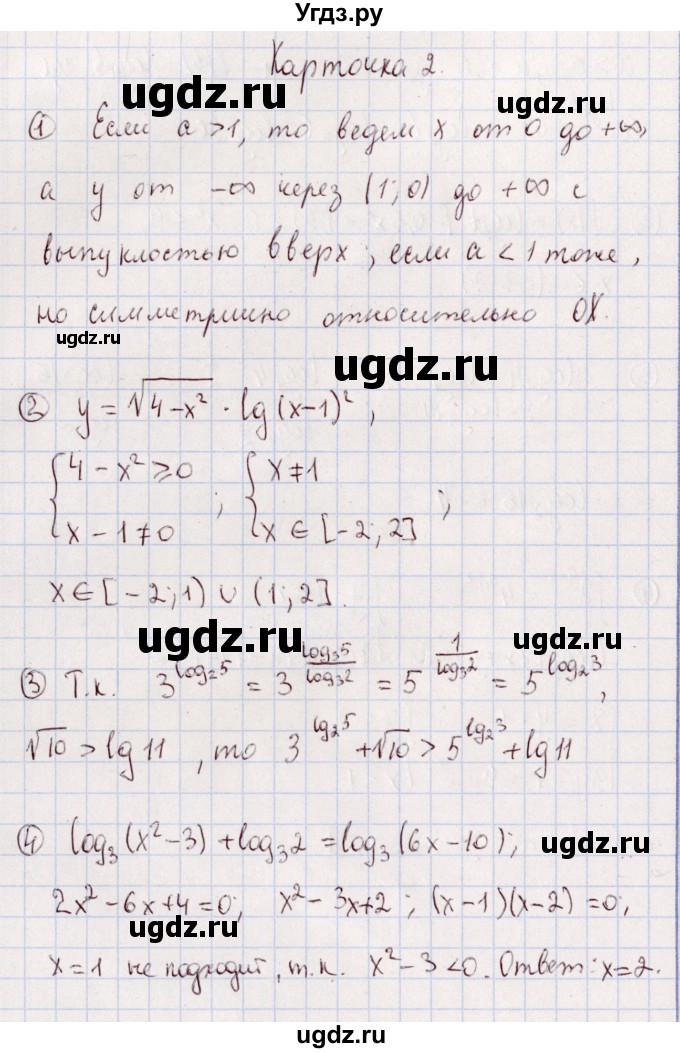 Угдз.ру
Карточка 2.
ugdz.ru
ugdz.ru
① Если a > 1, то ведем x от 0 до +∞,
а y от -∞ через (1; 0) до +∞ с
выпуклостью вверх, если a < 1 тоже,
но симметрично относительно OX.
ugdz.ru
ugdz.ru
② y = √(4-x²) · lg(x-1)²,
{4 - x² ≥ 0 ; {x ≠ 1
{x - 1 ≠ 0 {x ∈ [-2; 2] ;
ugdz.ru
ugdz.ru
x ∈ [-2; 1) ∪ (1; 2].
ugdz.ru
ugdz.ru
③ Т.к. 3^(log₂5) = 3^(log₃5/log₃2) = 5^(1/log₃2) = 5^(log₂3),
√10 > lg 11, то 3^(lg₂5) + √10 > 5^(lg₂3) + lg 11
ugdz.ru
④ log₃(x²-3) + log₃2 = log₃(6x-10);
ugdz.ru
2x² - 6x + 4 = 0; x² - 3x + 2; (x-1)(x-2) = 0;
ugdz.ru
x = 1 не подходит, т.к. x² - 3 < 0. Ответ: x = 2.
ugdz.ru
ugdz.ru